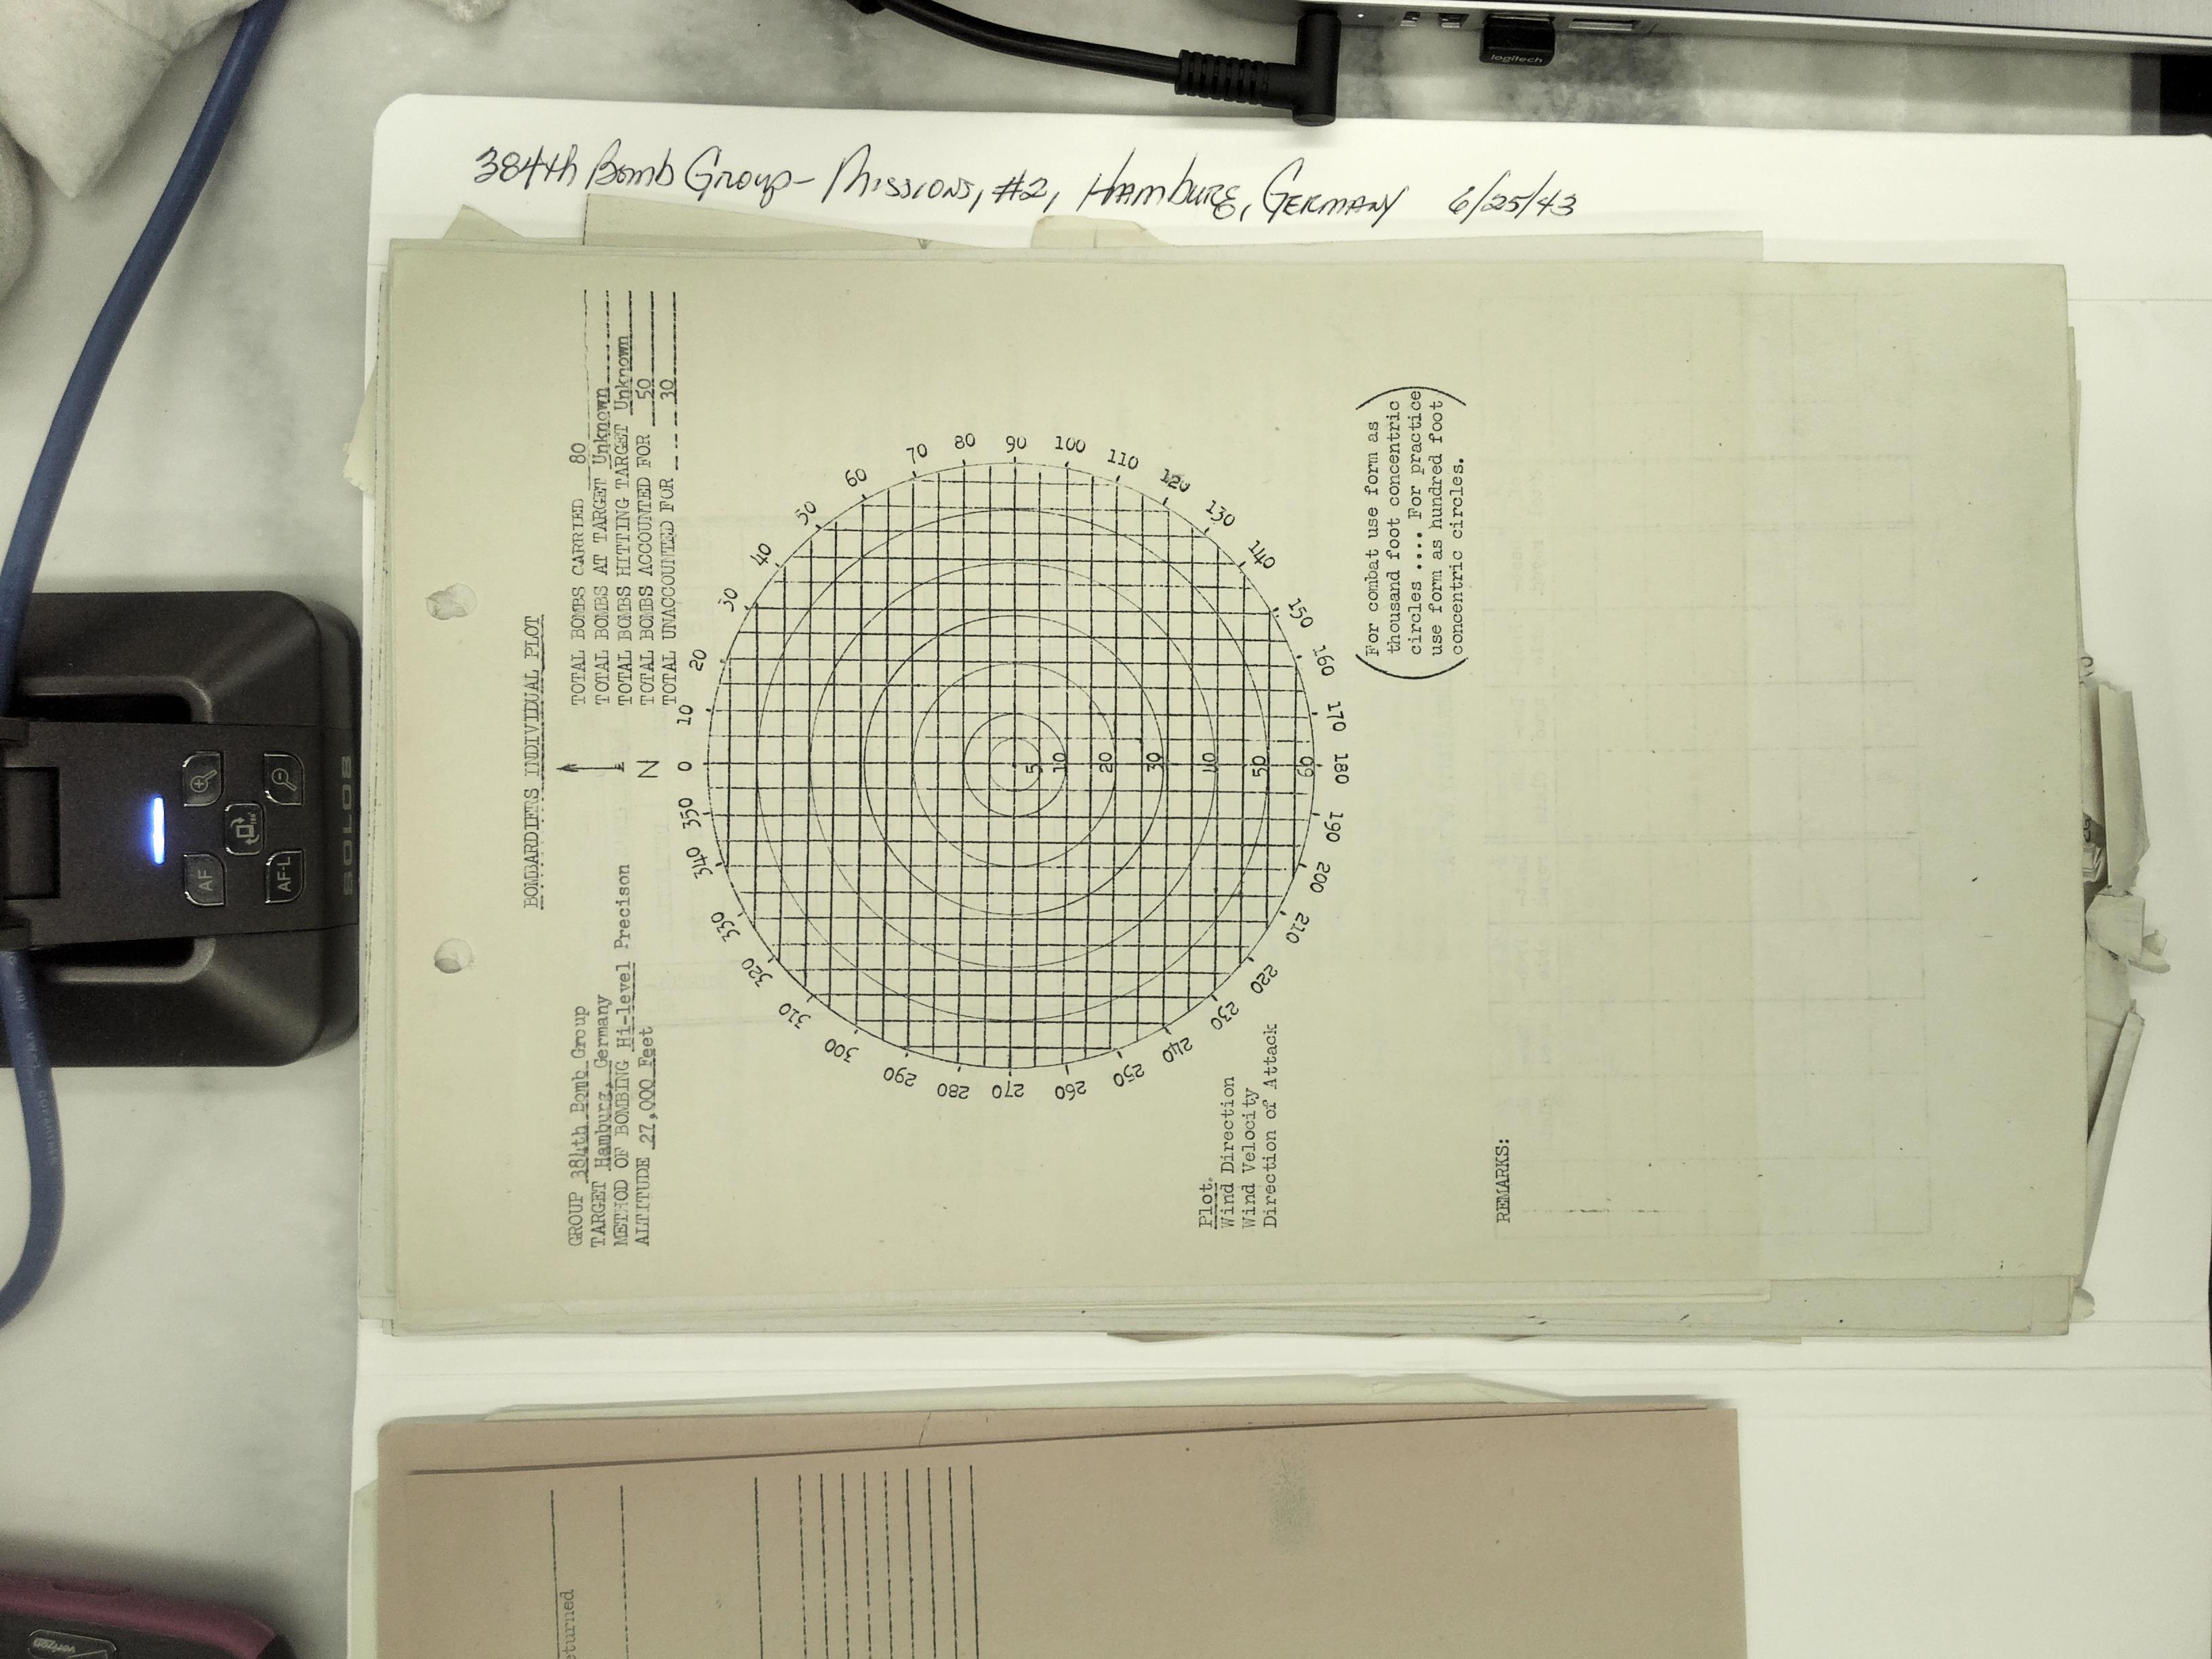 384th Bomb Group - Missions, #2, Hamburg, Germany 6/25/43
BOMBARDIERS INDIVIDUAL PLOT
GROUP 384th Bomb Group
TARGET Hamburg, Germany
METHOD OF BOMBING Hi-level Precison
ALTITUDE 27,000 Feet
TOTAL BOMBS CARRIED 80
TOTAL BOMBS AT TARGET Unknown
TOTAL BOMBS HITTING TARGET Unknown
TOTAL BOMBS ACCOUNTED FOR 50
TOTAL UNACCOUNTED FOR 30
N
0
10
20
30
40
50
60
70
80
90
100
110
120
130
140
150
160
170
180
190
200
210
220
230
240
250
260
270
280
290
300
310
320
330
340
350
5
10
20
30
40
50
60
Plot.
Wind Direction
Wind Velocity
Direction of Attack
(For combat use form as
thousand foot concentric
circles .... For practice
use form as hundred foot
concentric circles.)
REMARKS:
eturned
logitech
SOLO8
AF
AF-L
verizon